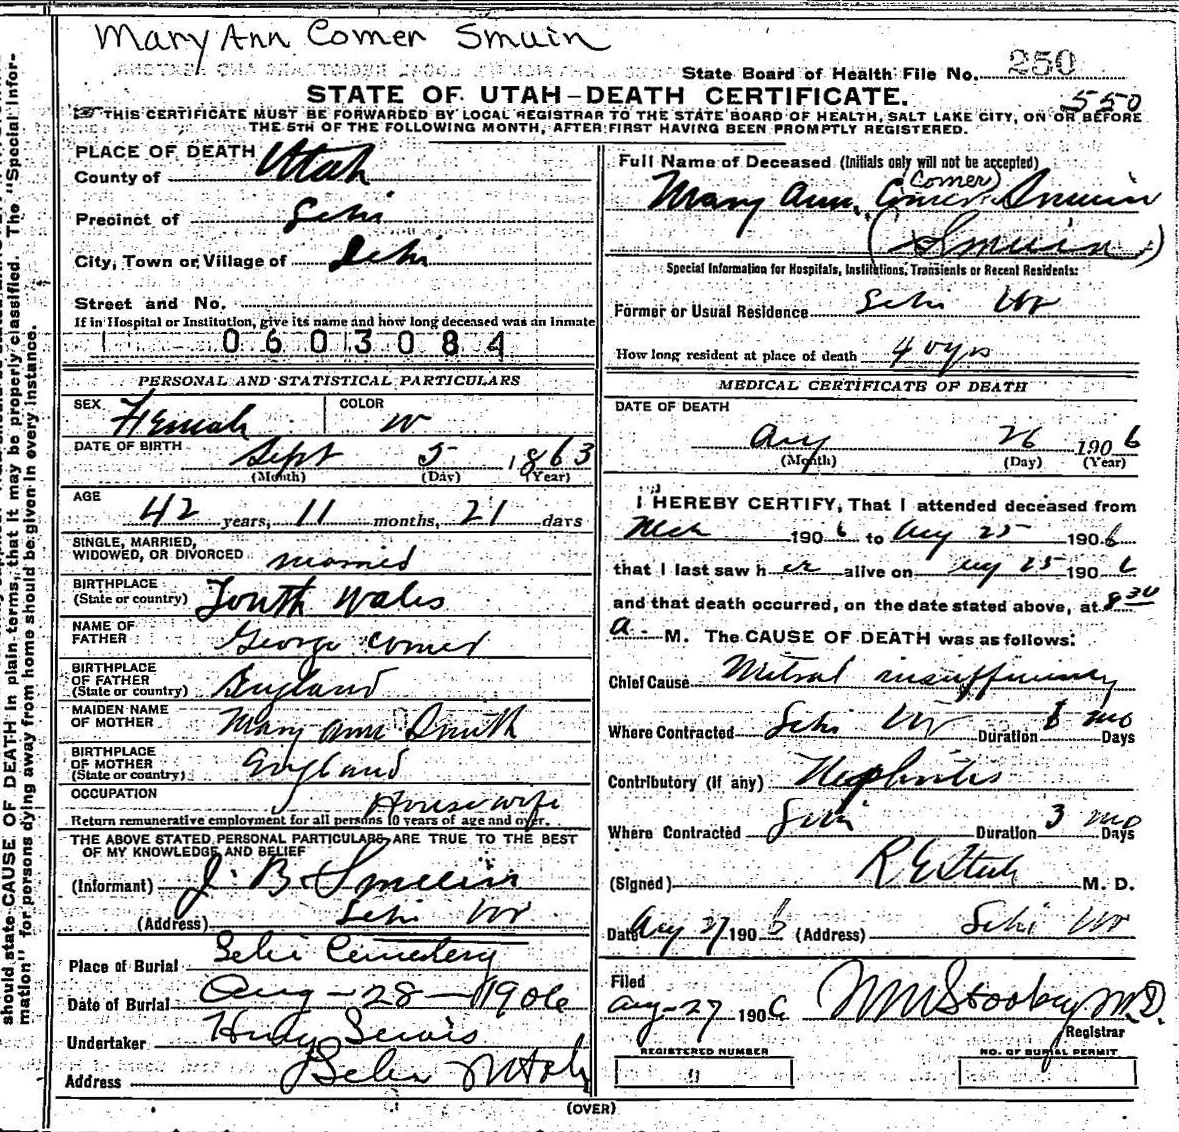 Mary Ann Comer Smuin
State Board of Health File No. 250
550
STATE OF UTAH—DEATH CERTIFICATE.
THIS CERTIFICATE MUST BE FORWARDED BY LOCAL REGISTRAR TO THE STATE BOARD OF HEALTH, SALT LAKE CITY, ON OR BEFORE
THE 5TH OF THE FOLLOWING MONTH, AFTER FIRST HAVING BEEN PROMPTLY REGISTERED.
PLACE OF DEATH
County of Utah
Precinct of Lehi
City, Town or Village of Lehi
Street and No.
If in Hospital or Institution, give its name and how long deceased was an Inmate
0603084
PERSONAL AND STATISTICAL PARTICULARS
SEX Female COLOR W
DATE OF BIRTH Sept 5 1863
(Month) (Day) (Year)
AGE 42 years, 11 months, 21 days
SINGLE, MARRIED,
WIDOWED, OR DIVORCED married
BIRTHPLACE
(State or country) South Wales
NAME OF
FATHER George Comer
BIRTHPLACE
OF FATHER
(State or country) England
MAIDEN NAME
OF MOTHER Mary Ann Smith
BIRTHPLACE
OF MOTHER
(State or country) England
OCCUPATION Housewife
Return remunerative employment for all persons 10 years of age and over.
THE ABOVE STATED PERSONAL PARTICULARS ARE TRUE TO THE BEST
OF MY KNOWLEDGE AND BELIEF
(Informant) J. B. Smuin
(Address) Lehi Ut
Place of Burial Lehi Cemetery
Date of Burial Aug—28—1906
Undertaker Lewis
Address Lehi Utah
Full Name of Deceased (Initials only will not be accepted)
(Comer)
Mary Ann Comer Smuin
(Smuin)
Special Information for Hospitals, Institutions, Transients or Recent Residents:
Former or Usual Residence Lehi Ut
How long resident at place of death 40 yrs
MEDICAL CERTIFICATE OF DEATH
DATE OF DEATH
Aug 26 1906
(Month) (Day) (Year)
I HEREBY CERTIFY, That I attended deceased from
Mch 1906 to Aug 25 1906
that I last saw her alive on Aug 25 1906
and that death occurred, on the date stated above, at 8 30
a. M. The CAUSE OF DEATH was as follows:
Chief Cause Mitral insufficiency
Where Contracted Lehi Ut Duration 6 mo Days
Contributory (if any) Nephritis
Where Contracted Lehi Duration 3 mo Days
(Signed) R E Steele M. D.
Date Aug 27 1906 (Address) Lehi Ut
Filed
Aug-27 1906 M.D.
Registrar
REGISTERED NUMBER
11
NO. OF BURIAL PERMIT
(OVER)
should state CAUSE OF DEATH in plain terms, that it may be properly classified. The "Special Infor-
mation" for persons dying away from home should be given in every instance.